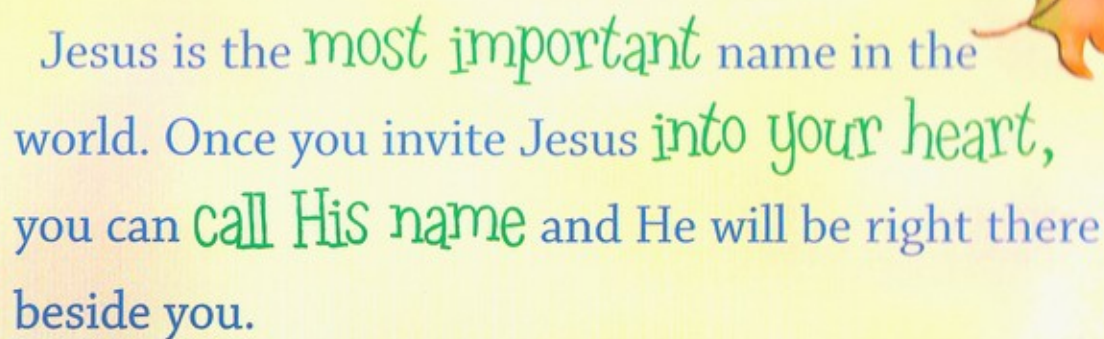 Jesus is the most important name in the
world. Once you invite Jesus into your heart,
you can call His name and He will be right there
beside you.